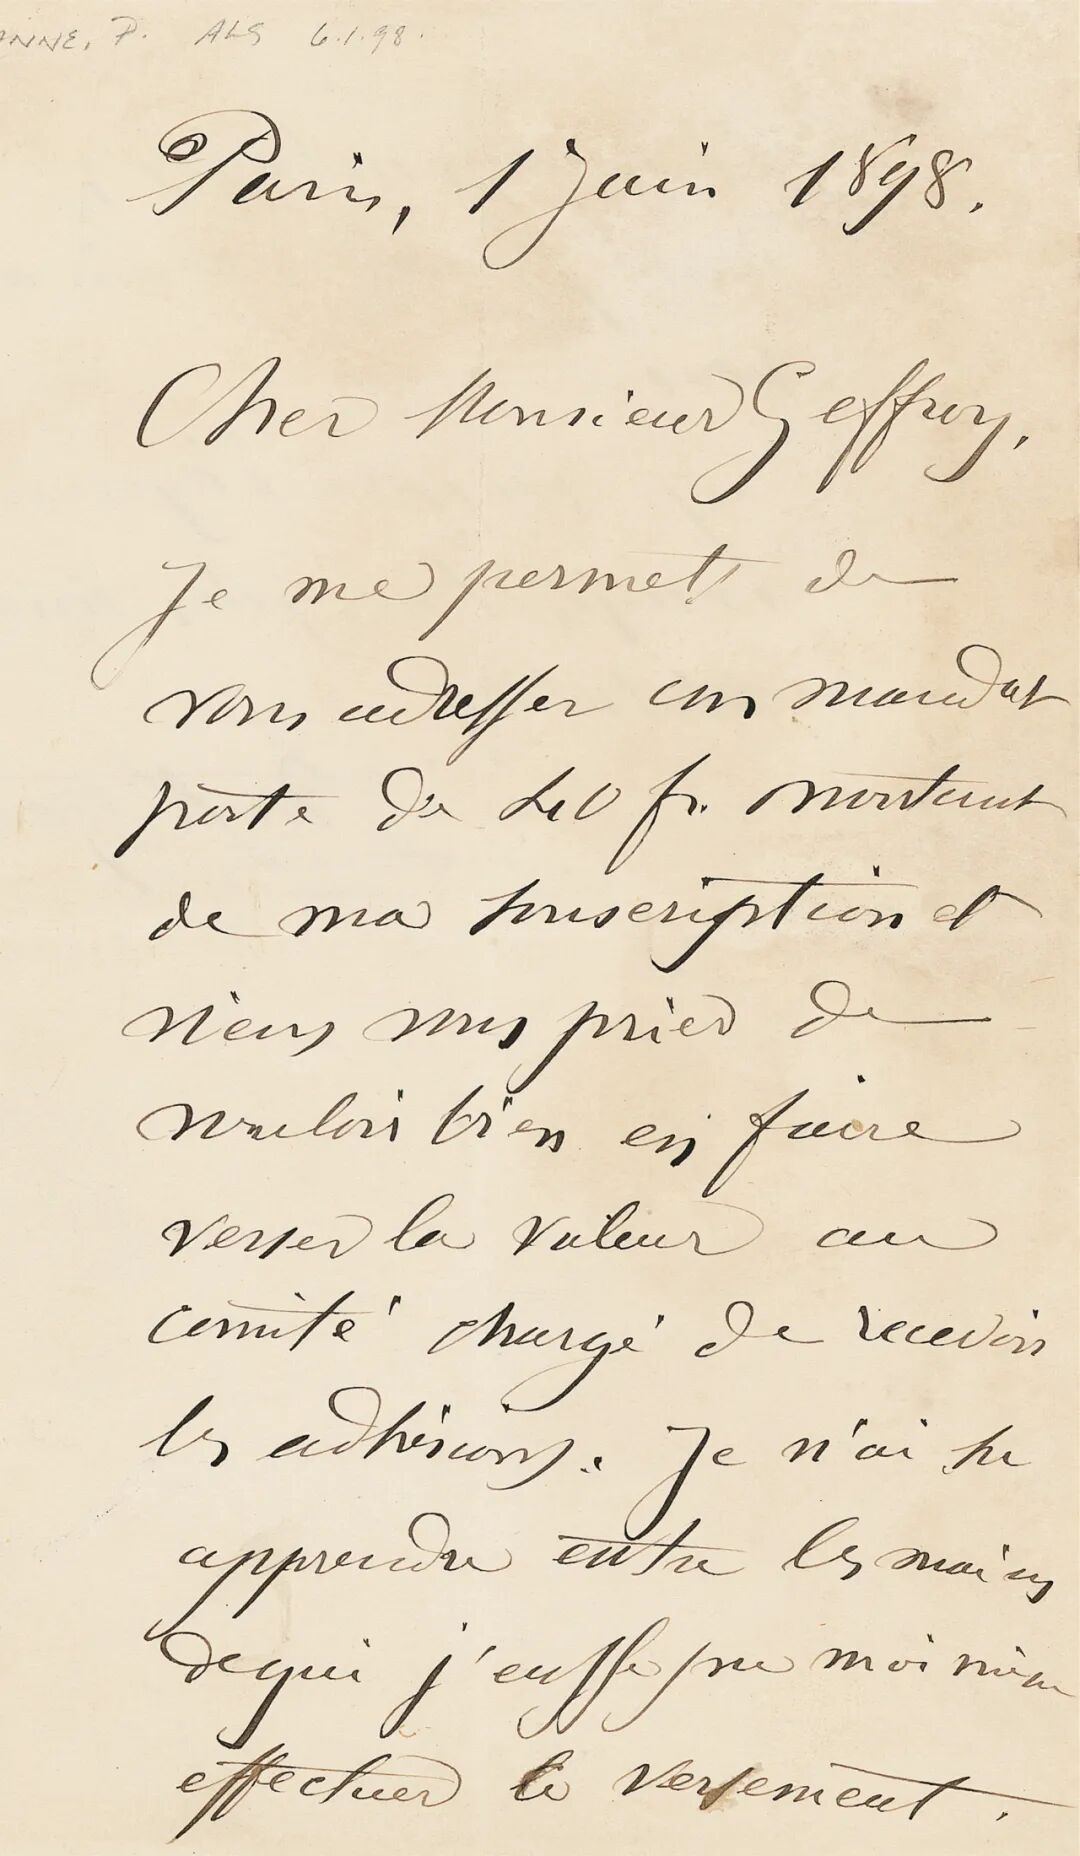 ANNE, P. ALS 6.1.98.
Paris, 1 Juin 1898.
Cher Monsieur Geffroy,
Je me permets de
vous adresser un mandat
poste de 40 fr. montant
de ma souscription et
viens vous prier de
vouloir bien en faire
verser la valeur au
comité chargé de recevoir
les adhésions. Je n'ai su
apprendre entre les mains
de qui j'eusse pu moi même
effectuer le versement.